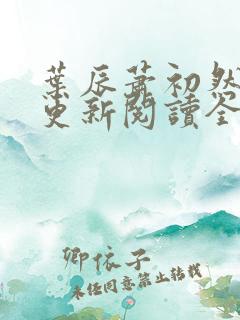 葉辰蕭初然
更新閱讀全
卿依子
未任同意禁止转载